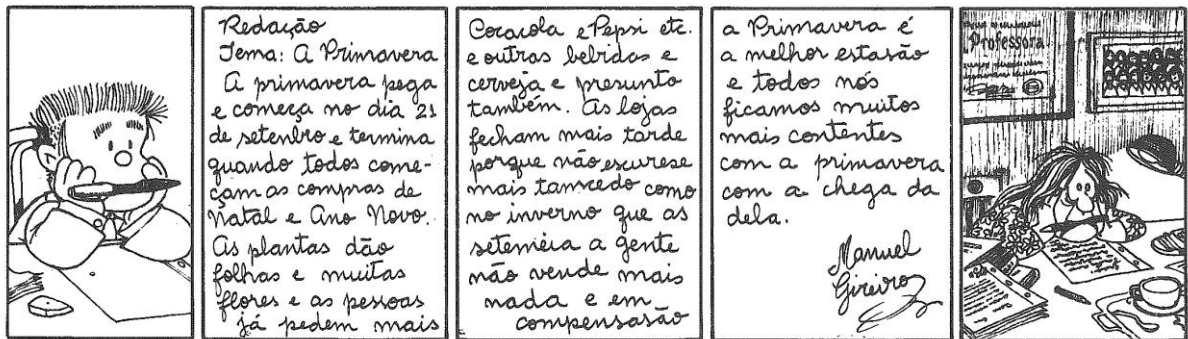 Redação
Tema: A Primavera
A primavera pega
e começa no dia 21
de setenbro e termina
quando todos come-
çam as compras de
Natal e Ano Novo.
As plantas dão
folhas e muitas
flores e as pessoas
já pedem mais
Cocacola e Pepsi etc.
e outras bebidas e
cerveja e presunto
também. As lojas
fecham mais tarde
porque não escurese
mais tamcedo como
no inverno que as
setemeia a gente
não vende mais
nada e em
compensasão
a Primavera é
a melhor estasão
e todos nós
ficamos muitos
mais contentes
com a primavera
com a chega da
dela.
Manuel
Gireiro
Professora